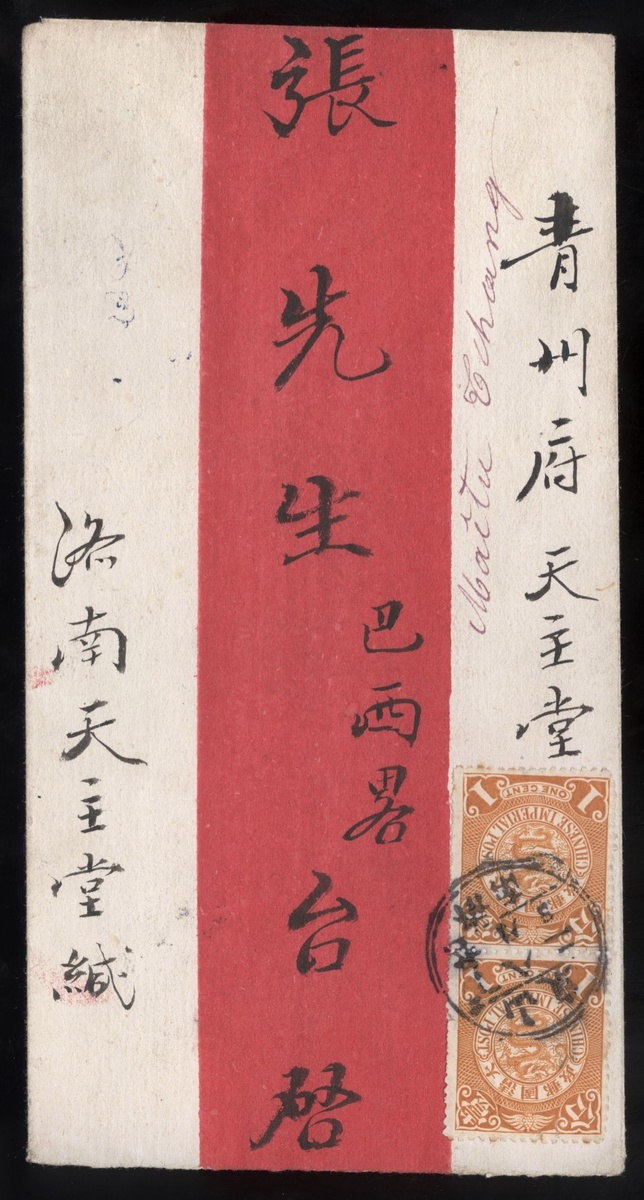 青州府天主堂
Maître Tchang
張先生巴西畧台啓
洛南天主堂緘
1
ONE CENT
CHINESE IMPERIAL POST
大清國郵政
1
CHINESE IMPERIAL POST
大清國郵政
壹分